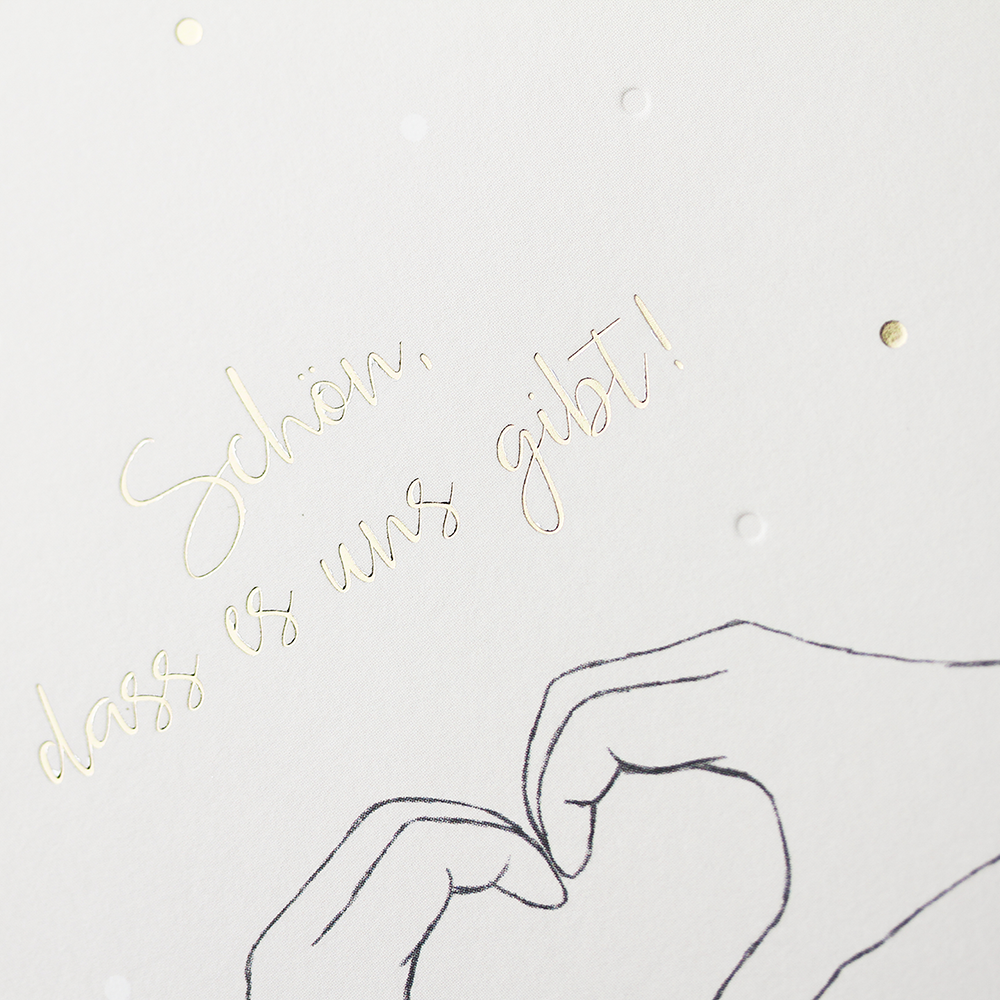 Schön,
dass es uns gibt!